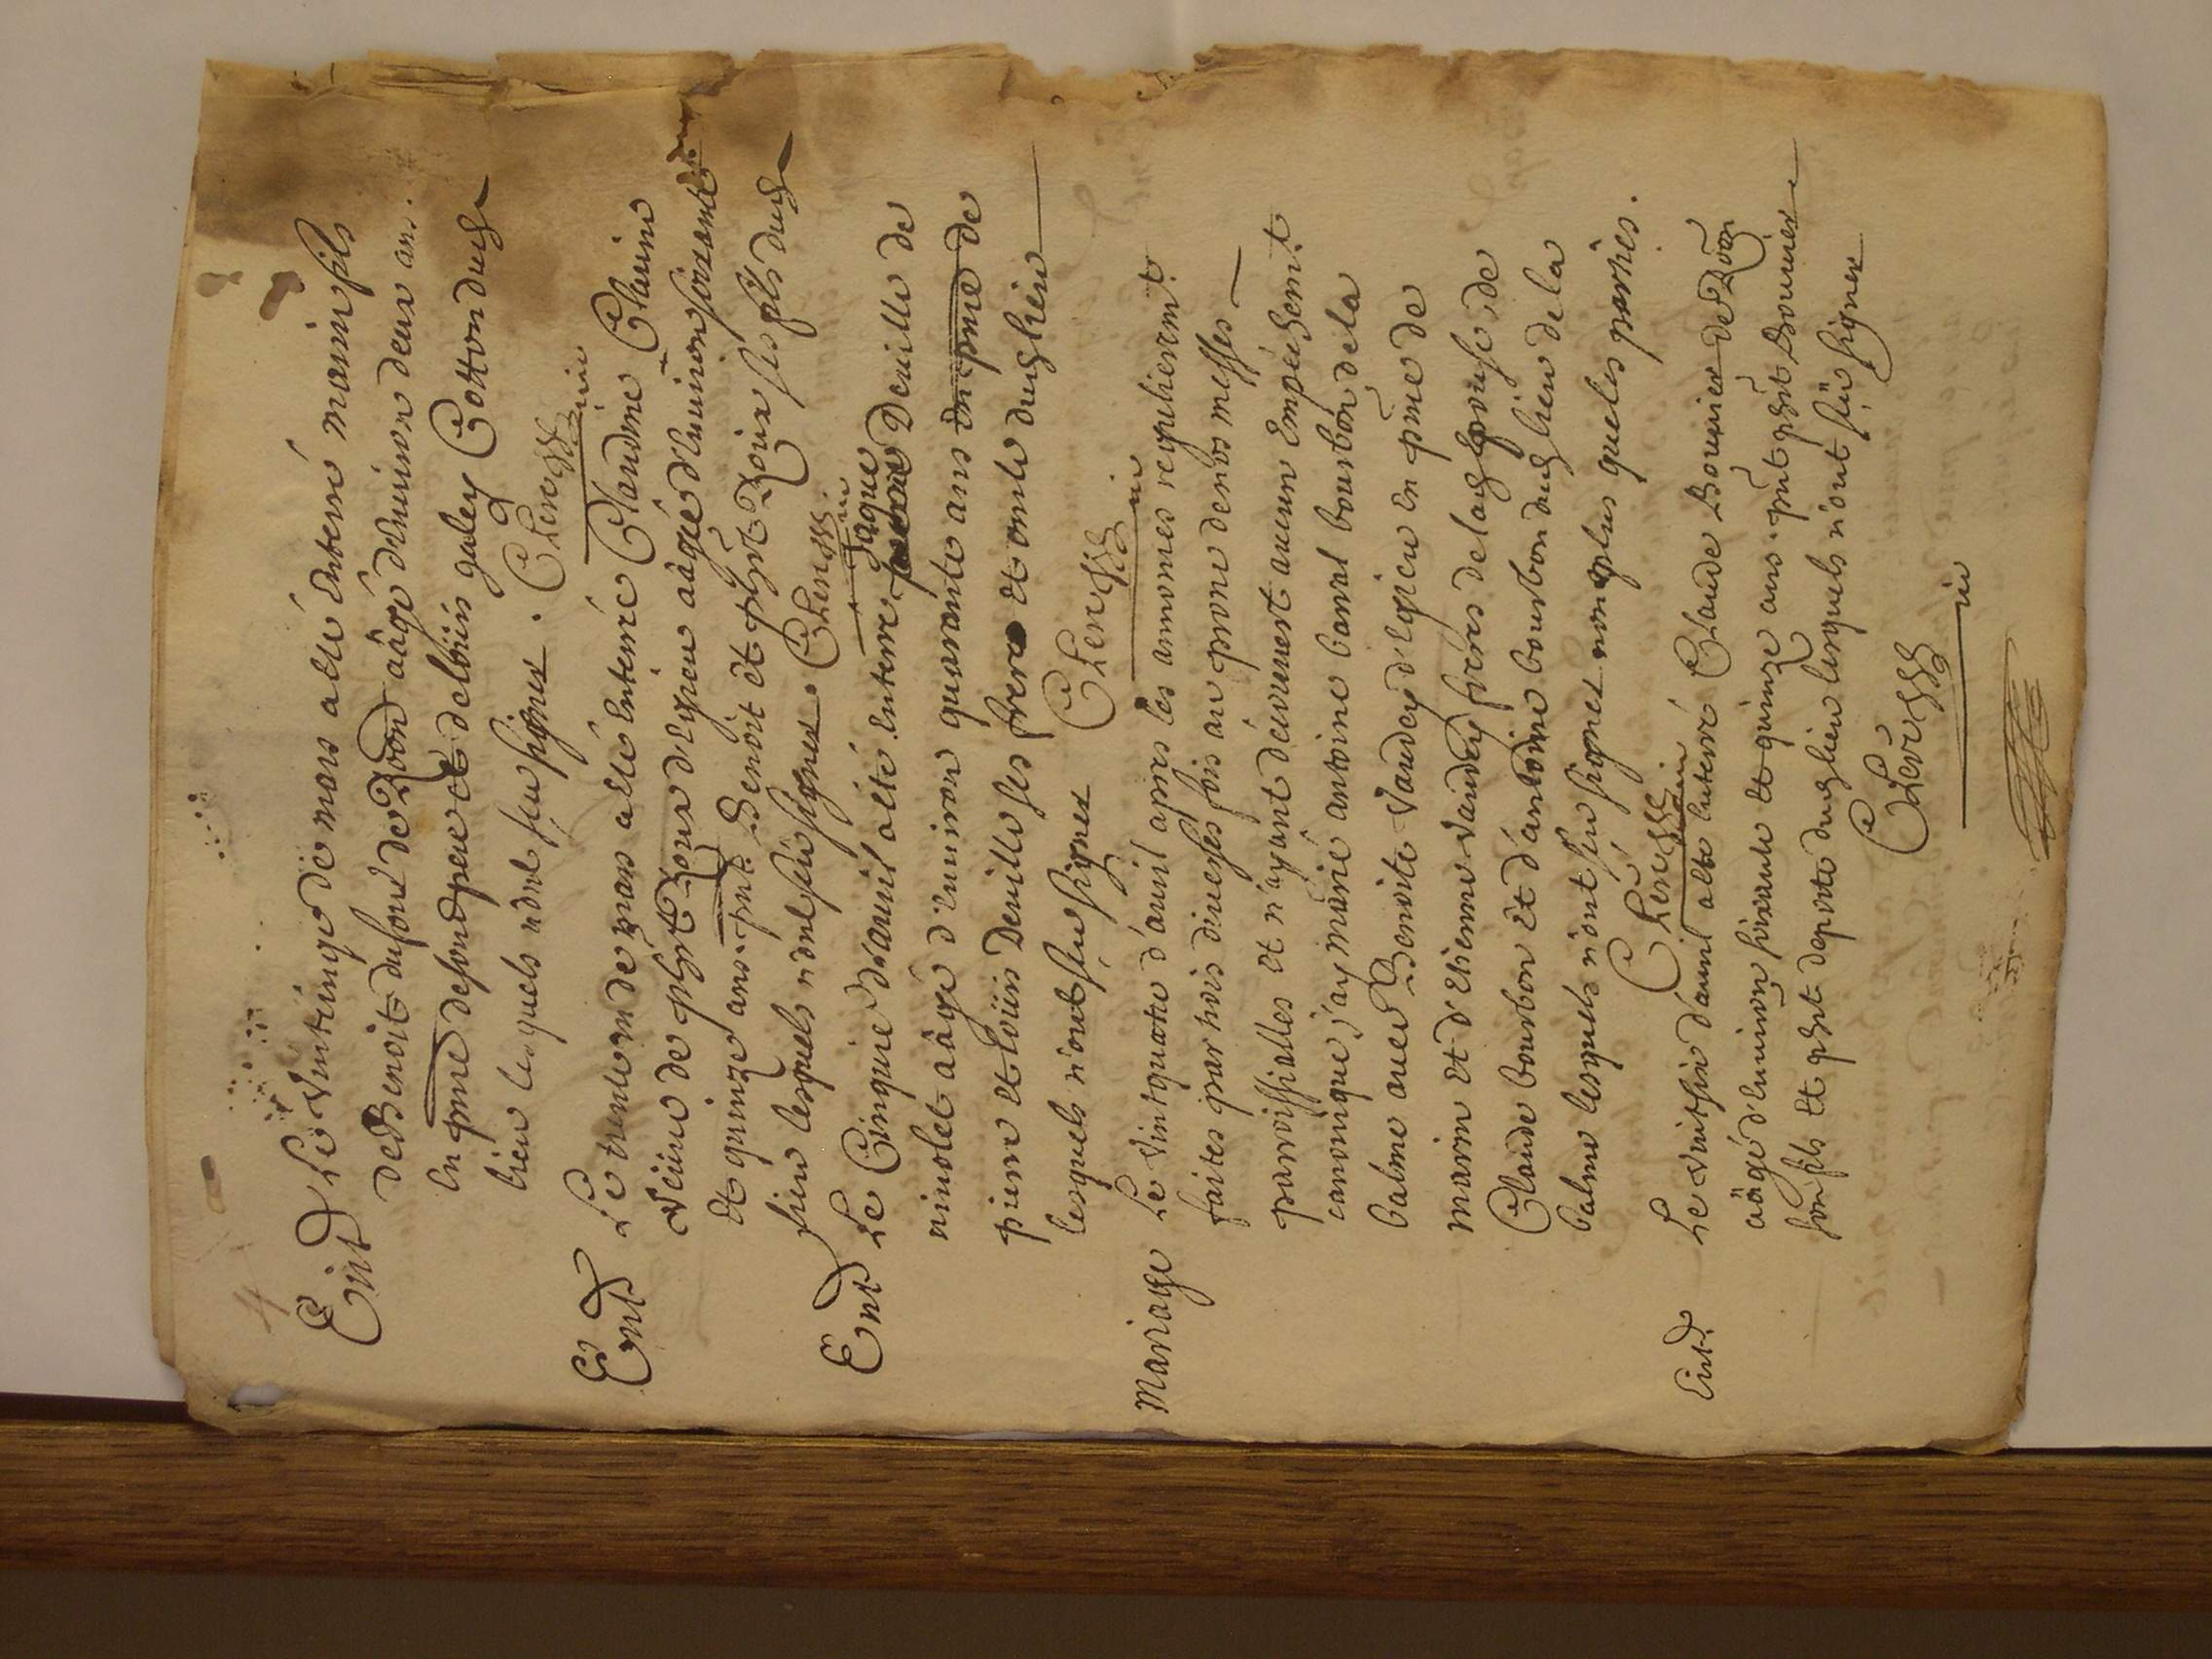 4
Ent Le vintiunye de mars a esté enterré marin fils
de Benoit dufour de Rodon aâgé d'environ deux an.
en pnce de son d pere et de loüis galey Cotton dud
lieu lesquels n'ont sçu signer. Clerc
Ent Le trente de mars a esté enterré Claudine Claire
veüve de phbt Roux d'Epieu aâgée d'environ soixante
et quinze ans. pnt. Benoit et phbt Roux ses fils dud
lieu lesquels n'ont sçu signer. Clerc
Ent Le Cinquie d'avril a esté enterré Jaque Deville de
nivolet aâgé d'environ quarante ans en pnce de
pierre et loüis Deville ses frere et oncle dud lieu
lesquels n'ont sçu signer Clerc
Mariage Le vintquatre d'avril apres les annonces regulierem.t
faites par trois diverses fois au prone de nos messes
paroissialles et n'ayant découvert aucun empéchem.t
canonique j'ay marié antoine barral bourbon de la
balme avec Benoite vaudey d'epieu en pnce de
marin et d'etienne vaudey freres de lad epouse, de
Claude bourbon et d'antoine bourbon dud lieu de la
balme lesquels n'ont sçu signer non plus que les parties.
Clerc
Ent. Le vintsix d'avril a esté enterré Claude Bouvier de Rodon
aâgé d'environ soixante et quinze ans. pnt phbt Bouvier
son fils et phbt deporte dud lieu lesquels n'ont sçu signer
Clerc